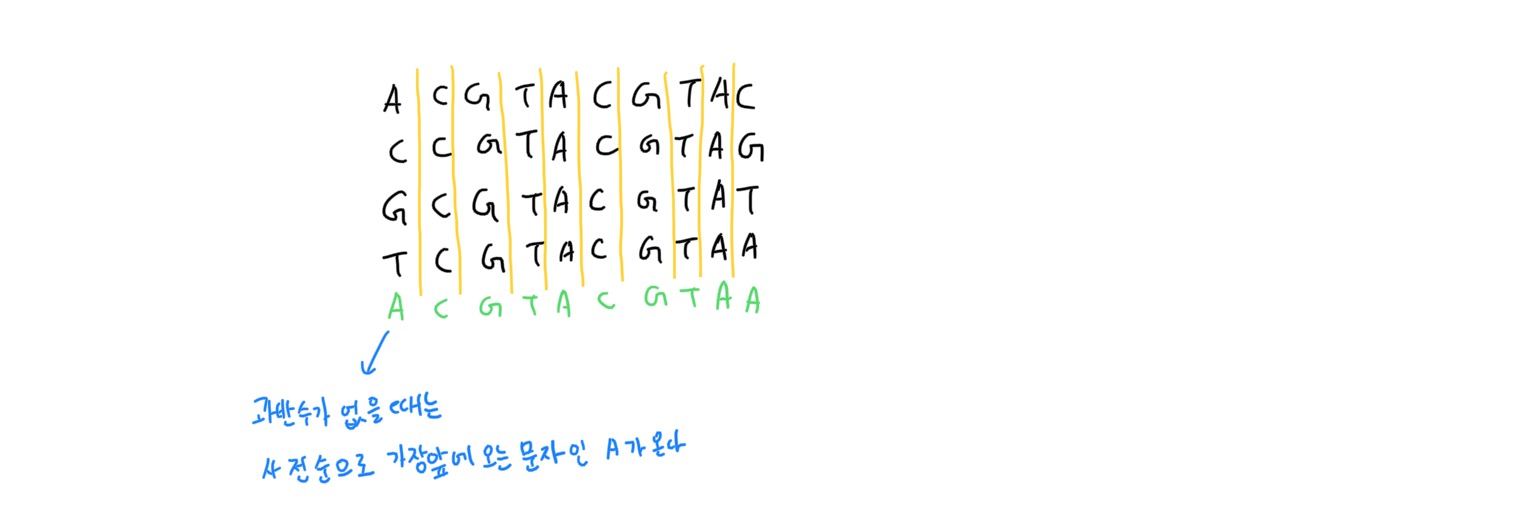 A C G T A C G T A C
C C G T A C G T A G
G C G T A C G T A T
T C G T A C G T A A
A C G T A C G T A A
과반수가 없을 때는
사전순으로 가장앞에 오는 문자인 A가 온다